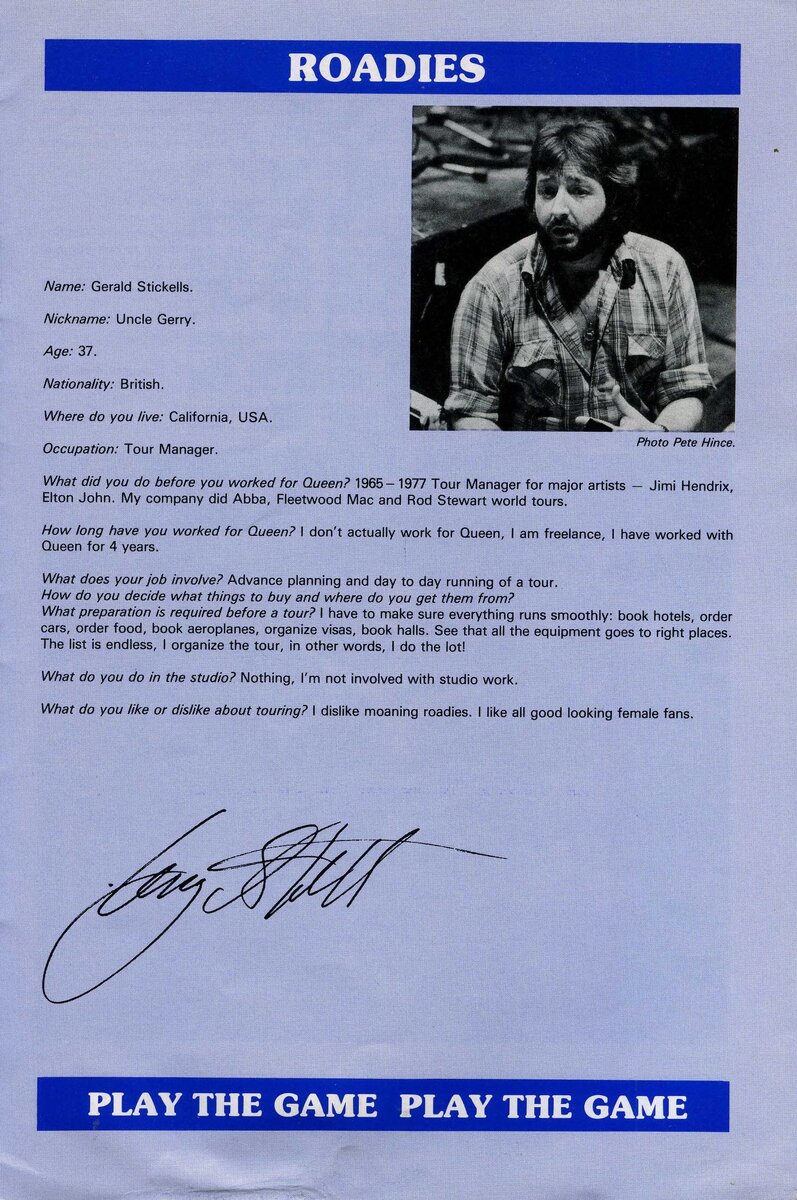 ROADIES
Name: Gerald Stickells.
Nickname: Uncle Gerry.
Age: 37.
Nationality: British.
Where do you live: California, USA.
Occupation: Tour Manager.
Photo Pete Hince.
What did you do before you worked for Queen? 1965–1977 Tour Manager for major artists — Jimi Hendrix,
Elton John. My company did Abba, Fleetwood Mac and Rod Stewart world tours.
How long have you worked for Queen? I don't actually work for Queen, I am freelance, I have worked with
Queen for 4 years.
What does your job involve? Advance planning and day to day running of a tour.
How do you decide what things to buy and where do you get them from?
What preparation is required before a tour? I have to make sure everything runs smoothly: book hotels, order
cars, order food, book aeroplanes, organize visas, book halls. See that all the equipment goes to right places.
The list is endless, I organize the tour, in other words, I do the lot!
What do you do in the studio? Nothing, I'm not involved with studio work.
What do you like or dislike about touring? I dislike moaning roadies. I like all good looking female fans.
PLAY THE GAME PLAY THE GAME